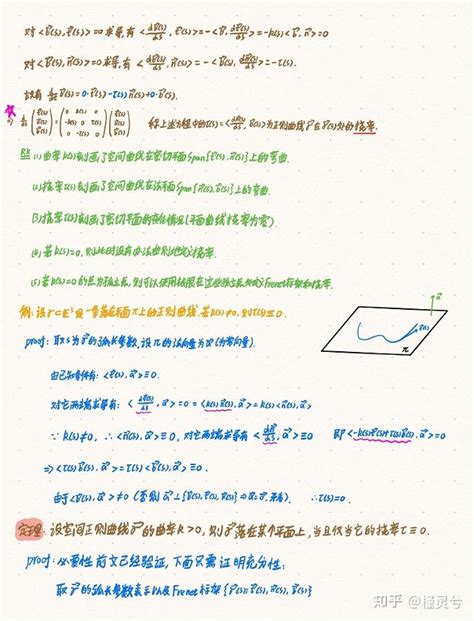 对<B(s), t(s)>=0求导, 有 <dB(s)/ds, t(s)>=-<B, dt(s)/ds>=-k(s)<B, n>=0
对<B(s), n(s)>=0求导, 有 <dB(s)/ds, n(s)>=-<B(s), dn(s)/ds>=-τ(s).
故有 d/ds B(s)=0·t(s)-τ(s)n(s)+0·B(s).
⇒ d/ds (t(s) n(s) B(s)) = (0 k(s) 0 -k(s) 0 τ(s) 0 -τ(s) 0)(t(s) n(s) B(s)) 称上述方程中的τ(s)=<dn(s)/ds, B(s)>为正则曲线r在r(s)处的挠率.
(1)曲率k(s)刻画了空间曲线在密切平面Span{t(s), n(s)}上的弯曲.
(2)挠率τ(s)刻画了空间曲线在法平面Span{n(s), B(s)}上的弯曲.
(3)挠率τ(s)刻画了密切平面的变化情况(平面曲线挠率为零).
(4)若k(s)=0, 则此时没有办法曲则地定义挠率.
(5)若k(s)=0的点为孤立点, 则可以使用极限在这些孤立点处定义Frenet标架和挠率.
例. 设r⊂E³是一条落在平面π上的正则曲线. 若k(s)≠0, 则τ(s)≡0.
proof: 取s为r的弧长参数, 设π的法向量为a(为常向量).
由已知条件有: <t(s), a>≡0.
对它两端求导有: <dt(s)/ds, a>≡0=<k(s)n(s), a>=k(s)<n(s), a>
∵k(s)≠0, ∴<n(s), a>≡0, 对它两端求导有<dn(s)/ds, a>≡0 即<-k(s)t(s)+τ(s)B(s), a>=0
⇒<τ(s)B(s), a>=τ(s)<B(s), a>≡0
由于<B(s), a>≠0 (否则a⊥{t(s), n(s), B(s)}⇒a=0, 矛盾) ∴τ(s)=0.
a
r(s)
π
定理: 设空间正则曲线r的曲率k>0, 则r落在某个平面上, 当且仅当它的挠率τ≡0.
proof: 必要性前文已经验证, 下面只需证明充分性:
取r的弧长参数表示以及Frenet标架{r(s); t(s), n(s), B(s)}
知乎 @槿灵兮